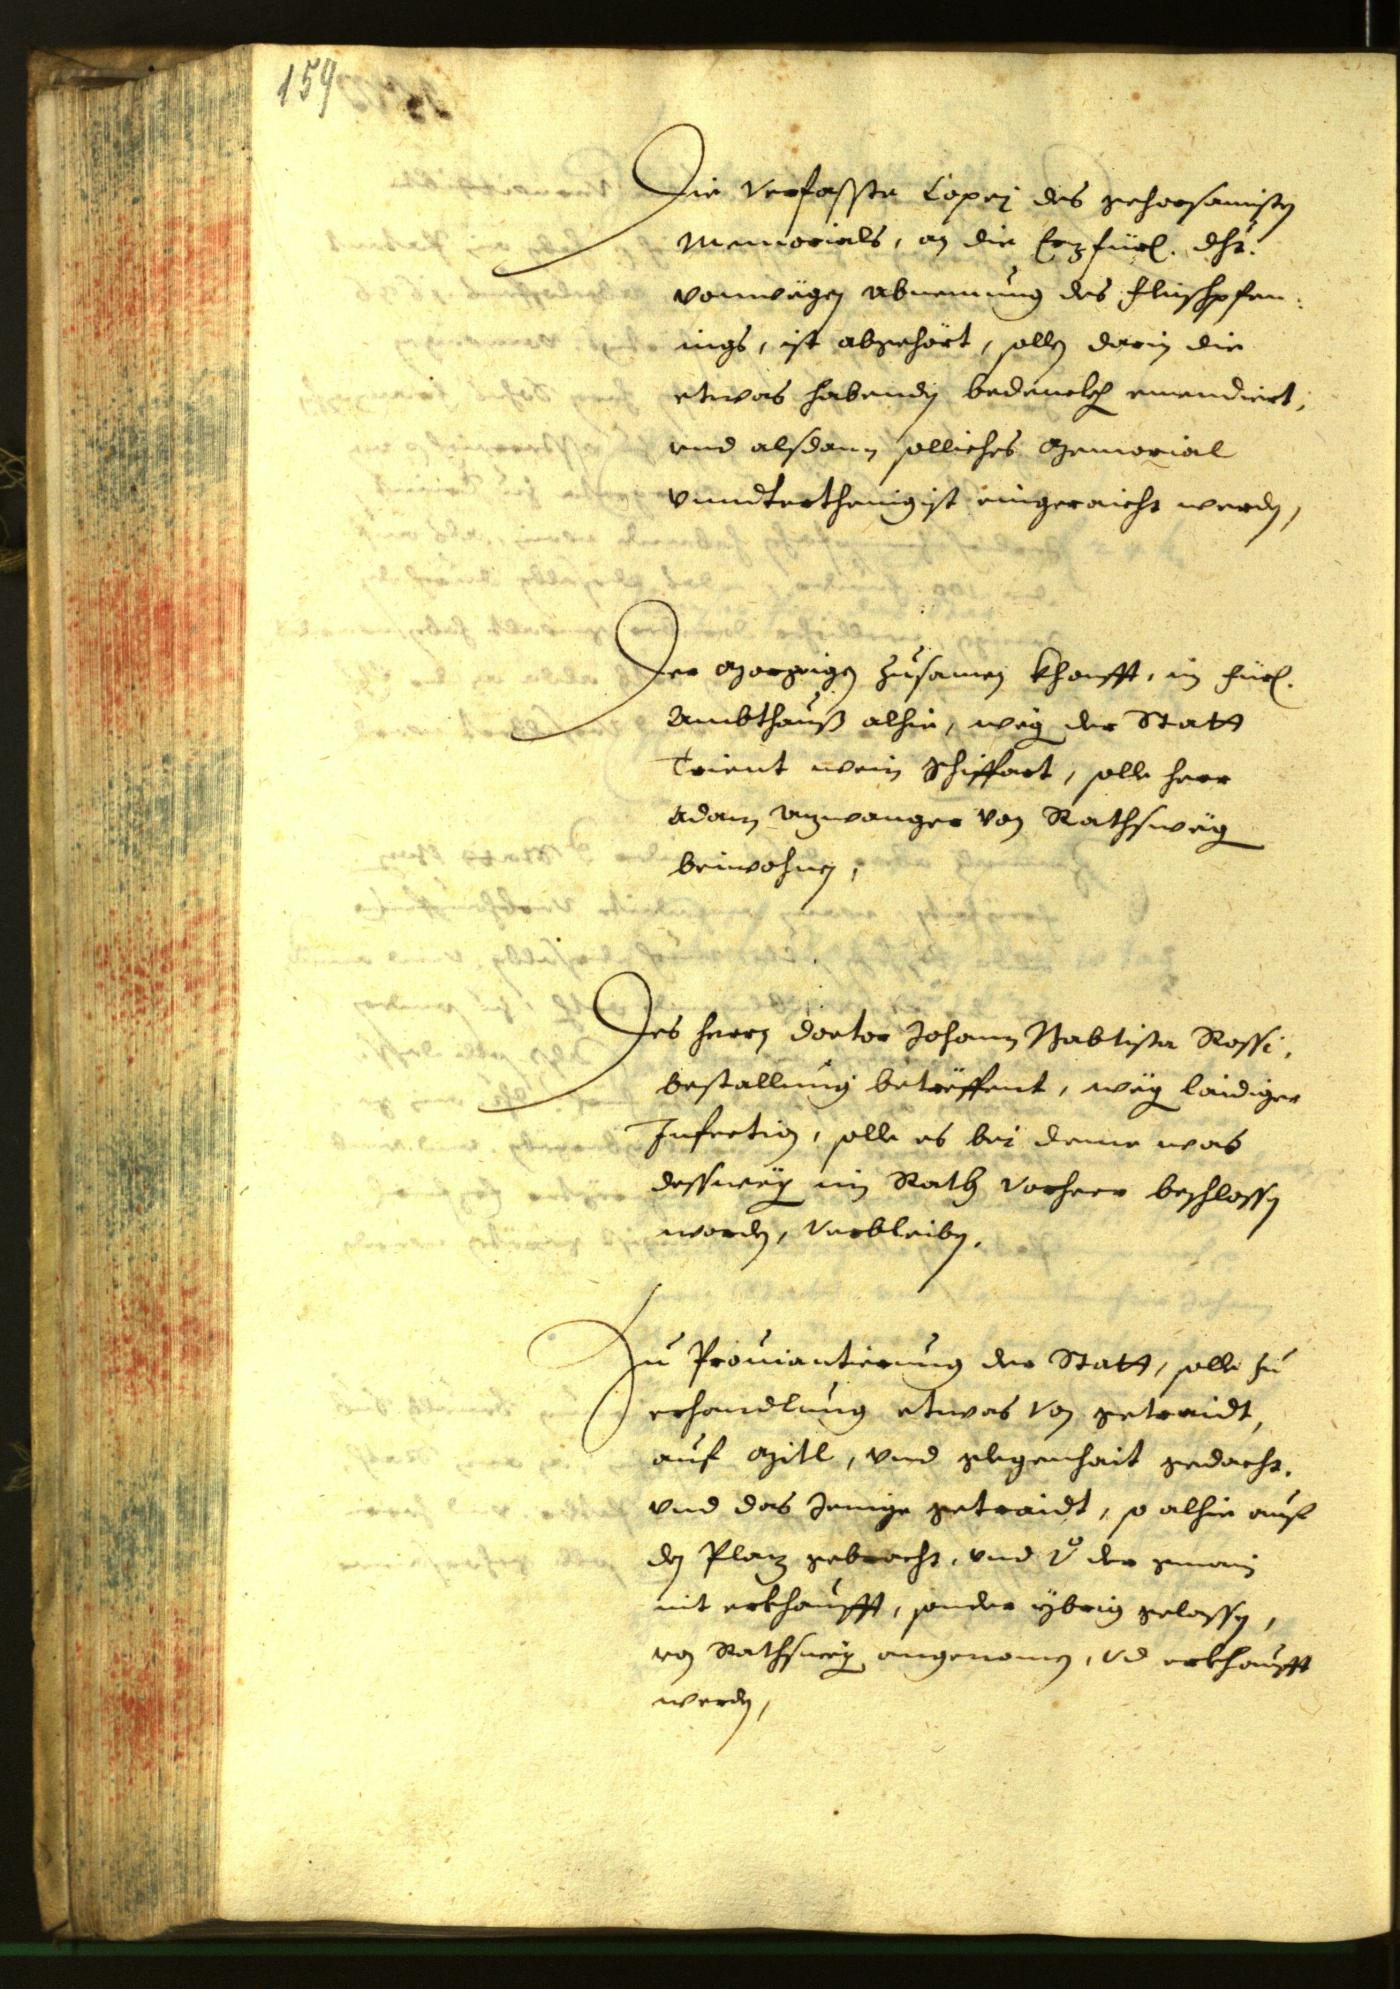 159
Die verfasste Copej des gehorsamisten
Memorials, an die Erzfürl. dht.
vonwëgen abnemung des fleischpfen-
ings, ist abgehört, sollen darin die
etwas habenden bedenckh emendiert,
und alsdann solliches Memorial
vnndterthenigist eingeraicht werden,
Der Morgigen Zusamen Khonfft, in fürl.
Ambthauß alhie, weg der Statt
Trient wein Schiffart, solle herr
Adam von Rathsweg
beiwohnen,
Des herrn doctor Johann Babtista Rossi,
bestallung betreffent, weg laidiger
Infection, solle es bei deme was
dessweg im Rath vorherr beschlossen
worden, verbleiben.
Zu Prouiantierung der Statt, solle zu
erhandlung etwas von getraidt,
auf Mitl, vnd glegenhait gedacht,
vnd das Jenige getraidt, so alhie auf
den Platz gebracht, vnd vo der gmain
nit erkhaufft, sonder ybrig gelassen,
von Rathsweg angenomen, vd erkhaufft
werden,